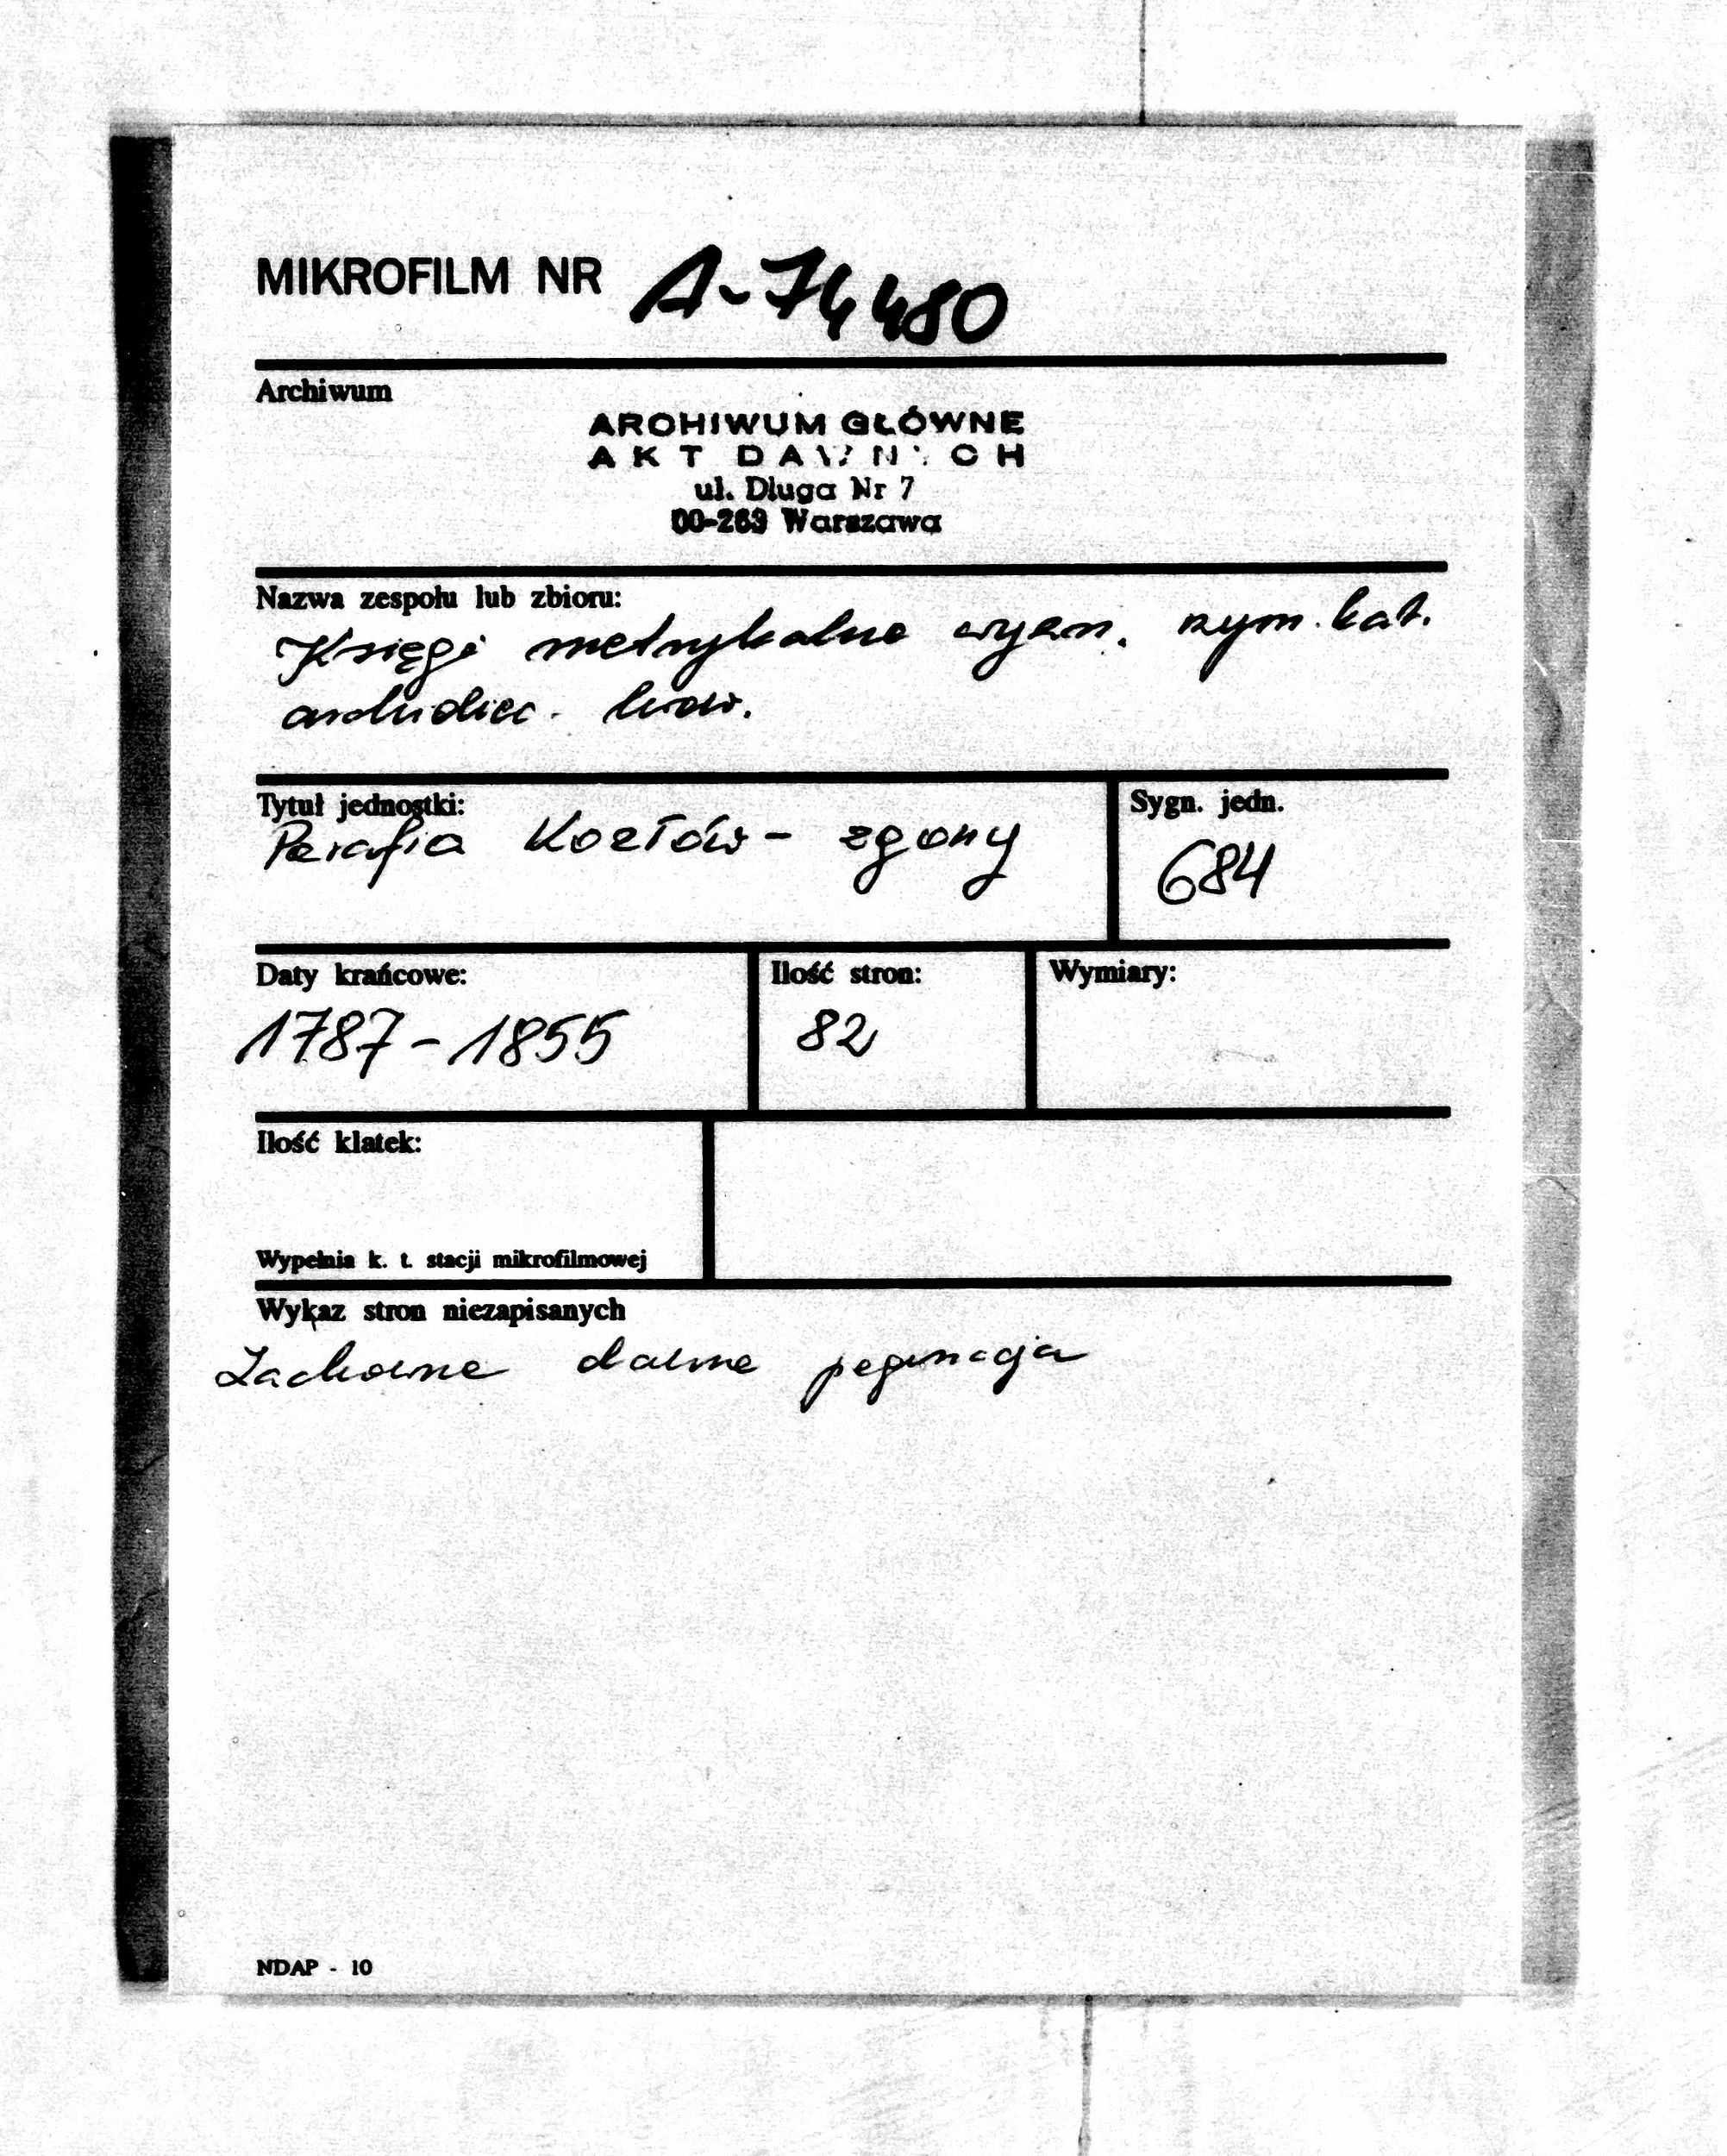 MIKROFILM NR A-74480
Archiwum
ARCHIWUM GŁÓWNE
AKT DAWNYCH
ul. Długa Nr 7
00-263 Warszawa
Nazwa zespołu lub zbioru:
Księgi metrykalne wyzn. rzym. kat.
archidiec. lwow.
Tytuł jednostki:
Parafia Kozłów - zgony
Sygn. jedn.
684
Daty krańcowe:
1787 - 1855
Ilość stron:
82
Wymiary:
Ilość klatek:
Wypełnia k. t. stacji mikrofilmowej
Wykaz stron niezapisanych
Zachowane dawne paginacja
NDAP - 10